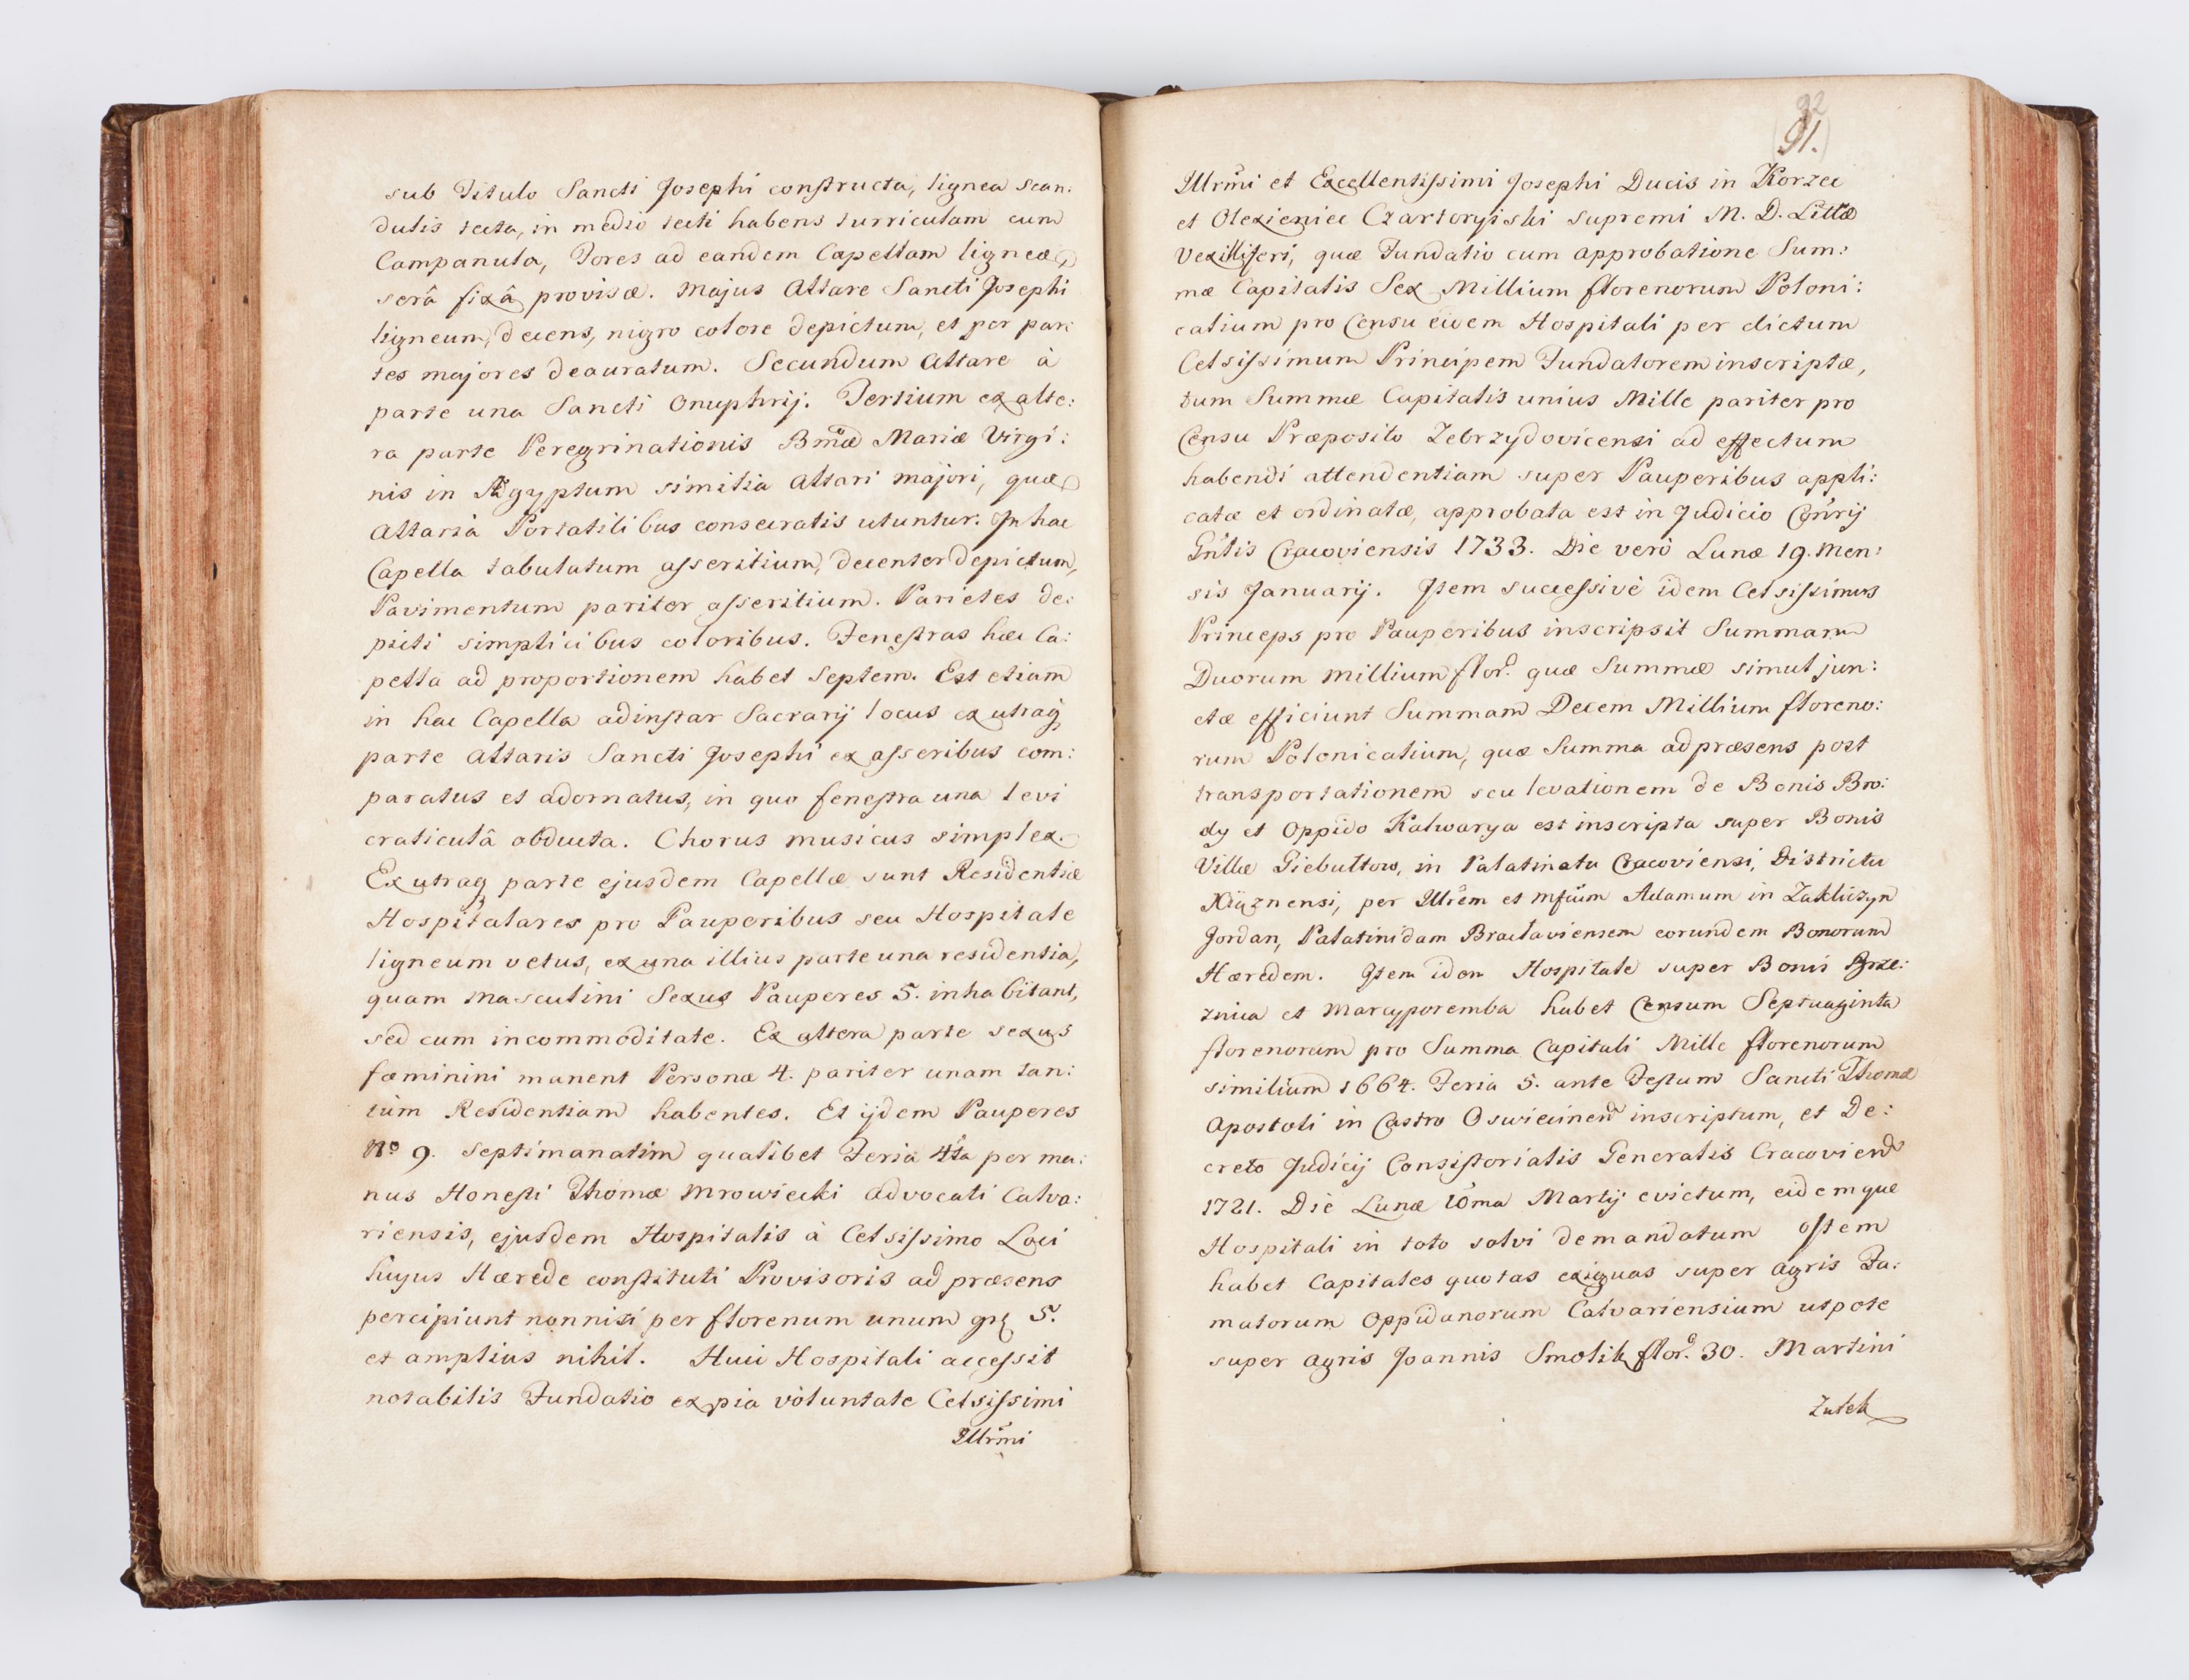 sub Titulo Sancti Josephi constructa, lignea scan:
dulis tecta, in medio tecti habens turriculam cum
Campanula, Fores ad eandem Capellam ligneæ,
serâ fixâ provisæ. Majus Altare Sancti Josephi
ligneum, decens, nigro colore depictum, et per par:
tes majores deauratum. Secundum Altare à
parte una Sancti Onuphrij. Tertium ex alte:
ra parte Peregrinationis Bmæ Mariæ Virgi:
nis in Ægyptum similia Altari majori, quæ
Altaria Portatilibus consecratis utuntur. In hac
Capella tabulatum asseritium, decenter depictum,
Pavimentum pariter asseritium. Parietes de:
picti simplicibus coloribus. Fenestras hæc Ca:
pella ad proportionem habet Septem. Est etiam
in hac Capella adinstar Sacrarij locus ex utraq
parte Altaris Sancti Josephi ex asseribus com:
paratus et adornatus, in quo fenestra una levi
craticulâ obducta. Chorus musicus simplex.
Ex utraq parte ejusdem Capellæ sunt Residentiæ
Hospitalares pro Pauperibus seu Hospitale
ligneum vetus, ex una illius parte una residentia,
quam Masculini Sexus Pauperes 5. inhabitant,
sed cum incommoditate. Ex altera parte sexus
fæminini manent Personæ 4. pariter unam tan:
tùm Residentiam habentes. Et ijdem Pauperes
No 9. septimanatim qualibet Feria 4ta per ma:
nus Honesti Thomæ Mrowiecki Advocati Calva:
riensis, ejusdem Hospitalis à Celsissimo Loci
hujus Hærede constituti Provisoris ad præsens
percipiunt nonnisi per florenum unum gr 5.
et amplius nihil. Huic Hospitali accessit
notabilis Fundatio ex pia voluntate Celsissimi
Illrmi
92
91.
Illrmi et Excellentissimi Josephi Ducis in Korzec
et Olexieniec Czartoryiski supremi M. D. Littæ
Vexilliferi, quæ Fundatio cum approbatione Sum:
mæ Capitalis Sex Millium florenorum Poloni:
calium pro Censu eidem Hospitali per dictum
Celsissimum Principem Fundatorem inscriptæ,
tum Summæ Capitalis unius Mille pariter pro
Censu Præposito Zebrzydovicensi ad effectum
habendi attendentiam super Pauperibus appli:
catæ et ordinatæ, approbata est in Judicio Consrij
Gnlis Cracoviensis 1733. Die verò Lunæ 19. Men:
sis Januarij. Item successivè idem Celsissimus
Princeps pro Pauperibus inscripsit Summam
Duorum millium flor. quæ Summæ simul jun:
ctæ efficiunt Summam Decem Millium floreno:
rum Polonicalium, quæ Summa ad præsens post
transportationem seu levationem de Bonis Bro:
dy et Oppido Kalwarya est inscripta super Bonis
Villæ Giebultow, in Palatinatu Cracoviensi, Districtu
Xiąznensi, per Illrem et Mfcum Adamum in Zakliczyn
Jordan, Palatinidam Braclaviensem eorundem Bonorum
Hæredem. Item idem Hospitale super Bonis Brze:
znica et Marcyporemba habet Censum Septuaginta
florenorum pro Summa Capitali Mille florenorum
similium 1664. Feria 5. ante Festum Sancti Thomæ
Apostoli in Castro Oswiecimen inscriptum, et De:
creto Judicij Consistorialis Generalis Cracovien
1721. Die Lunæ 10ma Martij evictum, eidemque
Hospitali in toto solvi demandatum Item
habet Capitales quotas exiguas super Agris Fa:
matorum Oppidanorum Calvariensium utpote
super Agris Joannis Smolik flor. 30. Martini
Zutek